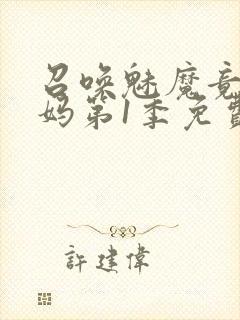 召唤魅魔竟
妈第1季免费
許建偉